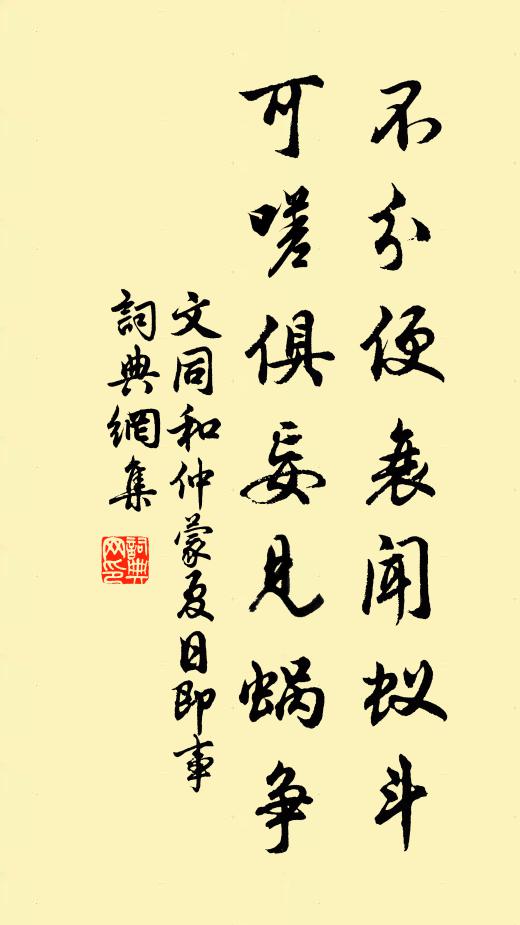 不分便衰闻蚁斗
可嗟俱妄见蜗争
文同和仲蒙夏日即事
詞典網集
詞典网印